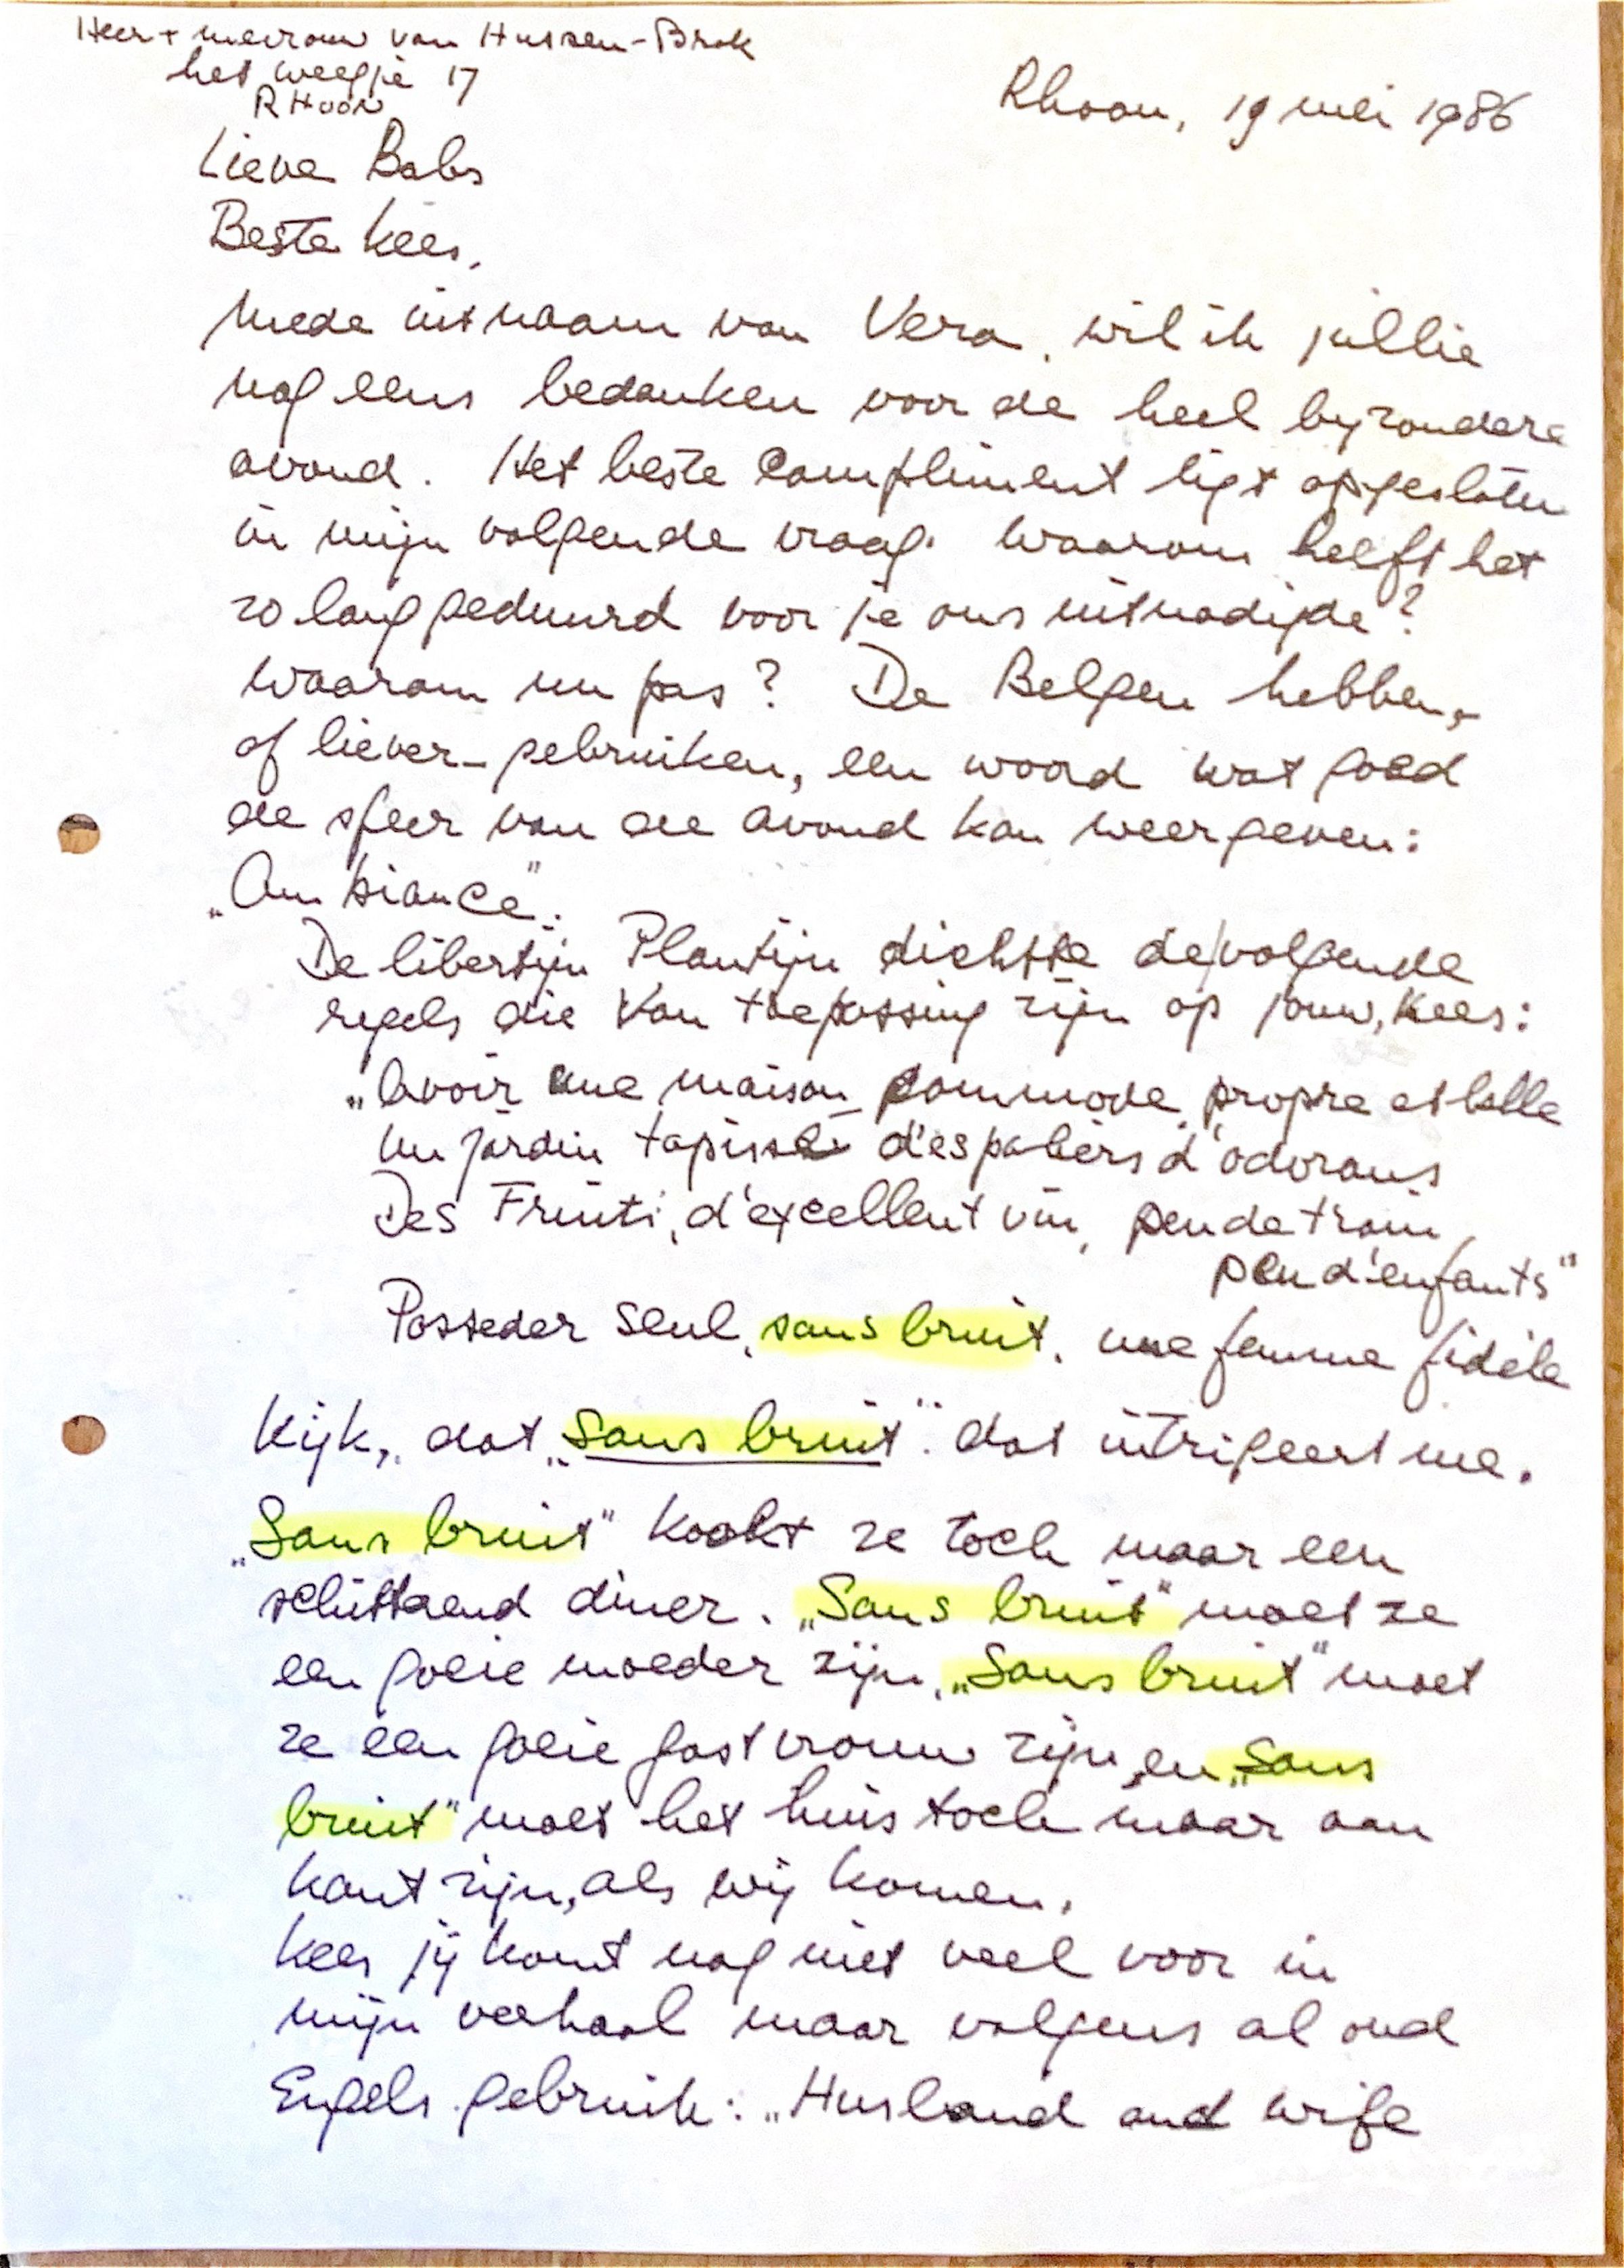 Heer + mevrouw van Hussen-Brok
het weegje 17
RHOON
Rhoon, 19 mei 1986
Lieve Babs
Beste Kees,
Mede uit naam van Vera, wil ik jullie
nog eens bedanken voor de heel byzondere
avond. Het beste compliment ligt opgesloten
in mijn volgende vraag. Waarom heeft het
zo lang geduurd voor je ons uitnodigde?
Waarom nu pas? De Belgen hebben,-
of liever- gebruiken, een woord wat goed
de sfeer van de avond kan weergeven:
„Ambiance".
De libertijn Plantijn dichtte de volgende
regels die van toepassing zijn op jouw, Kees:
„Avoir une maison commode, propre et belle
Un jardin tapissé d'espaliers d'odorans
Des Fruits, d'excellent vin, peu de train,
peu d'enfants"
Posseder seul, sans bruit, une femme fidèle
Kijk, dat „Sans bruit". dat intrigeert me.
„Sans bruit" kookt ze toch maar een
schitterend diner. „Sans bruit" moet ze
een goeie moeder zijn, „Sans bruit" moet
ze een goeie gastvrouw zijn, en „Sans
bruit" moet het huis toch maar aan
kant zijn, als wij komen.
Kees jij komt nog niet veel voor in
mijn verhaal maar volgens al oud
Engels gebruik: „Husband and wife